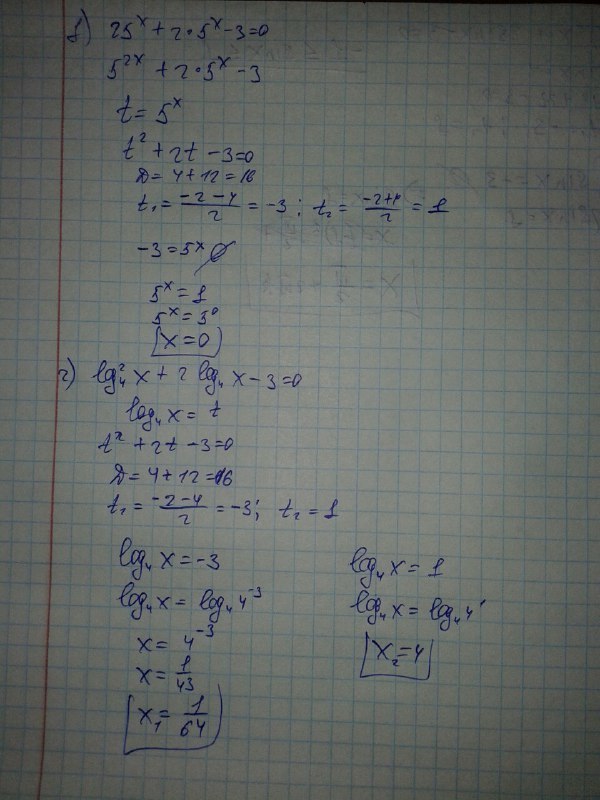 1) 25^x + 2·5^x - 3 = 0
5^2x + 2·5^x - 3
t = 5^x
t^2 + 2t - 3 = 0
D = 4 + 12 = 16
t₁ = (-2-4)/2 = -3 ; t₂ = (-2+4)/2 = 1
-3 = 5^x ∅
5^x = 1
5^x = 5^0
x = 0
2) log₄² x + 2 log₄ x - 3 = 0
log₄ x = t
t² + 2t - 3 = 0
D = 4 + 12 = 16
t₁ = (-2-4)/2 = -3 ; t₂ = 1
log₄ x = -3
log₄ x = log₄ 4^-3
x = 4^-3
x = 1/43
x₁ = 1/64
log₄ x = 1
log₄ x = log₄ 4^1
x₂ = 4